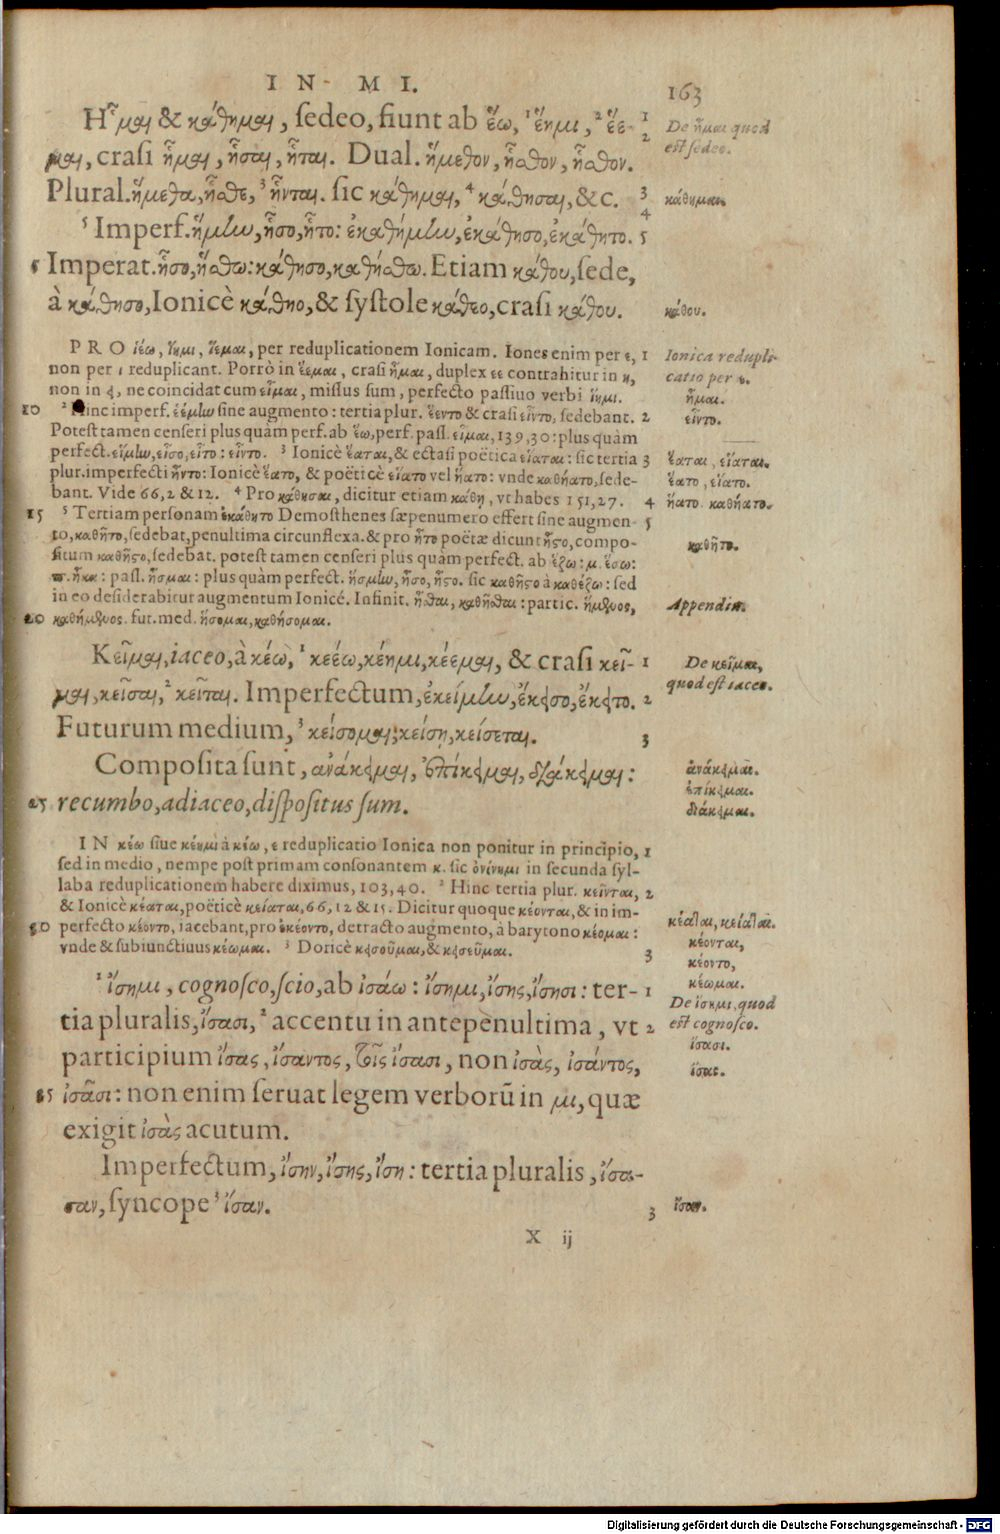 IN MI.
163
Ἧμαι & κάθημαι, sedeo, fiunt ab ἕω, ¹ ἕημι, ² ἕε- 1
2
μαι, crasi ἧμαι, ἧσαι, ἧται. Dual. ἥμεθον, ἧσθον, ἧσθον.
De ἧμαι quod
est sedeo.
Plural. ἥμεθα, ἧσθε, ³ ἧνται. sic κάθημαι, ⁴ κάθησαι, &c. 3
4
κάθημαι.
⁵ Imperf. ἥμην, ἧσο, ἧτο: ἐκαθήμην, ἐκάθησο, ἐκάθητο. 5
5 Imperat. ἧσο, ἥσθω: κάθησο, καθήσθω. Etiam κάθου, sede,
à κάθησο, Ionicè κάθηο, & systole κάθεο, crasi κάθου.
κάθου.
PRO ἱέω, ἵημι, ἵεμαι, per reduplicationem Ionicam. Iones enim per ε, 1
non per ι reduplicant. Porrò in ἕεμαι, crasi ἧμαι, duplex εε contrahitur in η,
non in ει, ne coincidat cum εἷμαι, missus sum, perfecto passiuo verbi ἵημι.
Ionica redupli-
catio per ε.
ἧμαι.
10 ² Hinc imperf. ἑέμην sine augmento: tertia plur. ἕεντο & crasi εἷντο, sedebant. 2
εἷντο.
Potest tamen censeri plus quàm perf. ab ἕω, perf. pass. εἷμαι, 139,30: plus quàm
perfect. εἵμην, εἷσο, εἷτο: εἷντο. ³ Ionicè ἕαται, & ectasi poëtica εἵαται: sic tertia 3
ἕαται, εἵαται.
plur. imperfecti ἧντο: Ionicè ἕατο, & poëticè εἵατο vel ἥατο: vnde καθήατο, sede-
ἕατο, εἵατο.
bant. Vide 66,2 & 12. ⁴ Pro κάθησαι, dicitur etiam κάθη, vt habes 151,27. 4
ἥατο. καθήατο.
15 ⁵ Tertiam personam ἐκάθητο Demosthenes sæpenumero effert sine augmen- 5
to, καθῆτο, sedebat, penultima circunflexa. & pro ἧτο poëtæ dicunt ἧστο, compo-
καθῆτο.
situm καθῆστο, sedebat. potest tamen censeri plus quàm perfect. ab ἕζω: μ. ἕσω:
π. ἧκα: pass. ἧσμαι: plus quàm perfect. ἥσμην, ἧσο, ἧστο. sic καθῆστο à καθέζω: sed
in eo desiderabitur augmentum Ionicé. Infinit. ἧσθαι, καθῆσθαι: partic. ἥμενος,
Appendix.
20 καθήμενος. fut. med. ἥσομαι, καθήσομαι.
Κεῖμαι, iaceo, à κέω, ¹ κεέω, κέημι, κέεμαι, & crasi κεῖ- 1
De κεῖμαι,
μαι, κεῖσαι, ² κεῖται. Imperfectum, ἐκείμην, ἔκεισο, ἔκειτο. 2
quod est iaceo.
Futurum medium, ³ κείσομαι, κείσῃ, κείσεται. 3
Composita sunt, ἀνάκειμαι, ἐπίκειμαι, διάκειμαι:
25 recumbo, adiaceo, dispositus sum.
ἀνάκειμαι.
ἐπίκειμαι.
διάκειμαι.
IN κέω siue κέημι à κέω, ε reduplicatio Ionica non ponitur in principio, 1
sed in medio, nempe post primam consonantem κ. sic ὀνίνημι in secunda syl-
laba reduplicationem habere diximus, 103,40. ² Hinc tertia plur. κεῖνται, 2
& Ionicè κέαται, poëticè κείαται, 66,12 & 15. Dicitur quoque κέονται, & in im-
κέαται, κείαται.
30 perfecto κέοντο, iacebant, pro ἐκέοντο, detracto augmento, à barytono κέομαι:
κέονται,
vnde & subiunctiuus κέωμαι. ³ Doricè κεισοῦμαι, & κεισεῦμαι. 3
κέοντο,
κέωμαι.
¹ Ἴσημι, cognosco, scio, ab ἰσάω: ἴσημι, ἴσης, ἴσησι: ter- 1
De ἴσημι quod
tia pluralis, ἴσασι, ² accentu in antepenultima, vt 2
est cognosco.
ἴσασι.
participium ἴσας, ἴσαντος, τοῖς ἴσασι, non ἰσὰς, ἰσάντος,
ἴσας.
35 ἰσᾶσι: non enim seruat legem verborũ in μι, quæ
exigit ἰσὰς acutum.
Imperfectum, ἴσην, ἴσης, ἴση: tertia pluralis, ἴσα-
σαν, syncope ³ ἴσαν. 3
ἴσαν.
X ij
Digitalisierung gefördert durch die Deutsche Forschungsgemeinschaft - DFG